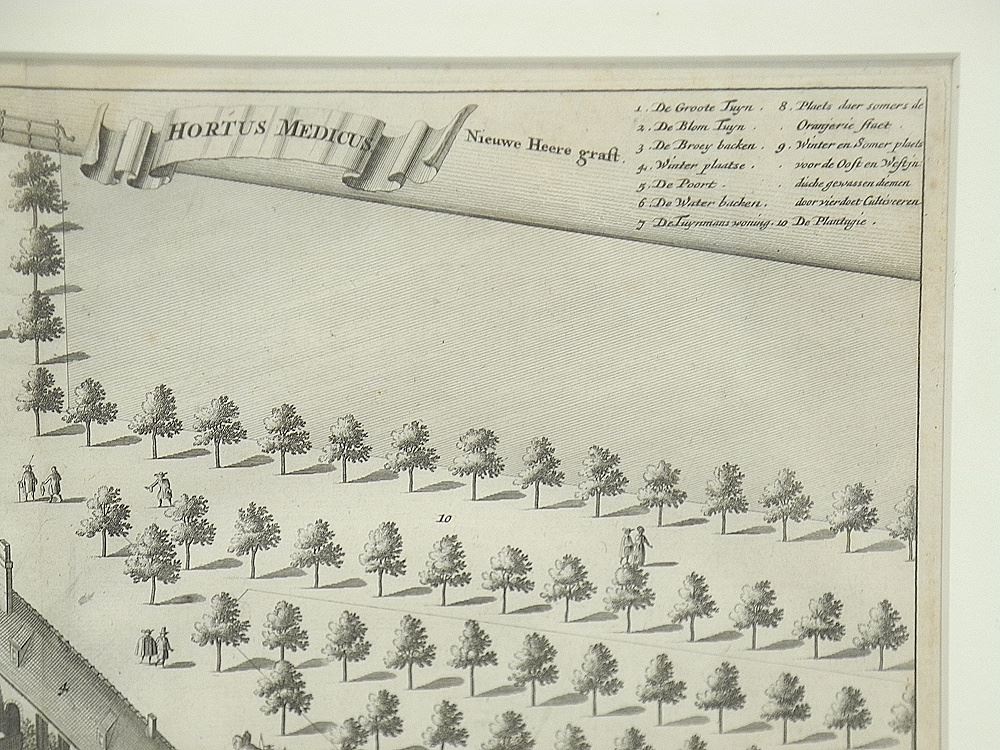 HORTUS MEDICUS
Nieuwe Heere graft.
1. De Groote Tuyn.
2. De Blom Tuyn.
3. De Broey backen.
4. Winter plaetse.
5. De Poort.
6. De Water backen.
7 De Tuynmans woning.
8. Plaets daer somers de
Oranjerie staet.
9. Winter en Somer plaets
voor de Oost en Westjn
dische gewassen diemen
door vier doet Cultiveeren
10 De Plantagie.
10
4